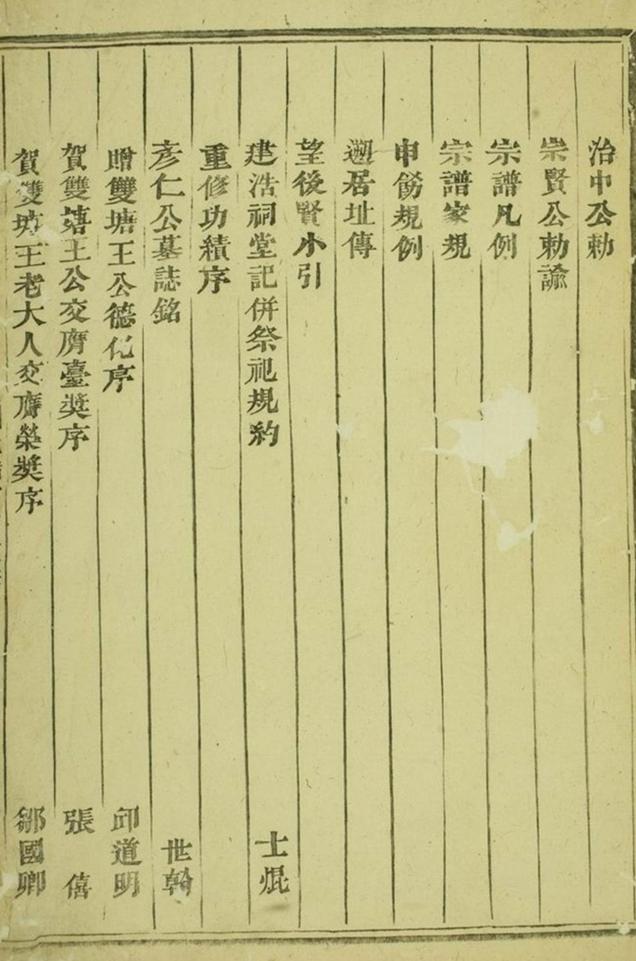 治中公勅
崇賢公勅諭
宗譜凡例
宗譜家規
申飭規例
遡居址傳
望後賢小引
建浩祠堂記併祭祀規約 士焜
重修功績序
彥仁公墓誌銘 世翰
贈雙塘王公德化序 邱道明
賀雙塘王公交膺臺奬序 張僖
賀雙塘王老大人交膺榮奬序 鄒國卿